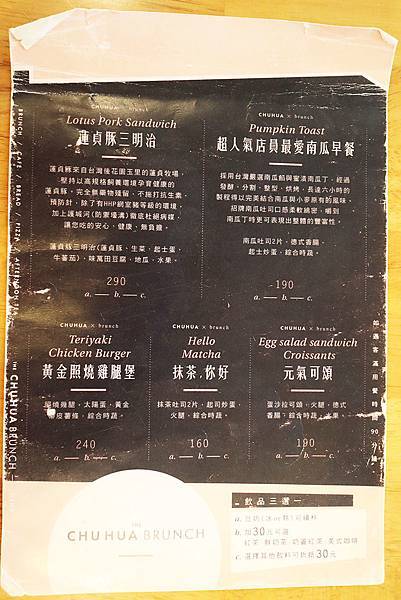 CHUHUA × brunch
Lotus Pork Sandwich
蓮貞豚三明治
蓮貞豚來自台灣後花園玉里的蓮貞牧場，
堅持以高規格飼養環境孕育健康的
蓮貞豚，完全無藥物殘留，不施打抗生素
預防針，除了有HHP網室豬等級的環境，
加上護城河(防禦壕溝)徹底杜絕病媒，
讓您吃的安心、健康、無負擔。
蓮貞豚三明治(蓮貞豚、生菜、起士蛋、
牛蕃茄)、味萬田豆腐、地瓜、水果。
290
a. b. c.
CHUHUA × brunch
Pumpkin Toast
超人氣店員最愛南瓜早餐
採用台灣嚴選南瓜餡與蜜漬南瓜丁，經過
發酵、分割、整型、烘烤，長達六小時的
製程得以完美結合南瓜與小麥原有的風味，
招牌南瓜吐司口感柔軟綿密，嚼到
南瓜丁時更可表現出整體的豐富性。
南瓜吐司2片、德式香腸、
起士炒蛋、綜合時蔬。
190
a. b. c.
CHUHUA × brunch
Teriyaki
Chicken Burger
黃金照燒雞腿堡
照燒雞腿、太陽蛋、黃金
脆皮薯條、綜合時蔬。
240
a. b. c.
CHUHUA × brunch
Hello
Matcha
抹茶，你好
抹茶吐司2片、起司炒蛋、
火腿、綜合時蔬。
160
a. b. c.
CHUHUA × brunch
Egg salad sandwich
Croissants
元氣可頌
蛋沙拉可頌、火腿、德式
香腸、綜合時蔬、水果。
190
a. b. c.
BRUNCH / CAFE / BREAD / PIZZA / AFTERNOON TEA
THE CHUHUA BRUNCH
如遇客滿用餐時間90分鐘
THE
CHUHUA BRUNCH
飲品三選一
a. 豆奶(冰or熱)可續杯
b. 加30元可選
紅茶、鮮奶茶、奶蓋紅茶、美式咖啡
c. 選擇其他飲料可折抵30元